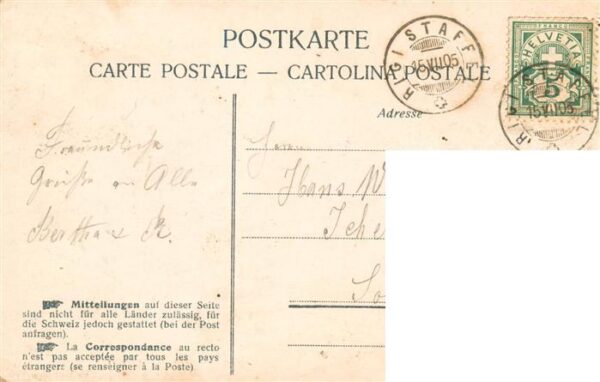 POSTKARTE
CARTE POSTALE — CARTOLINA POSTALE
RIGI STAFFEL
15.VII.05
HELVETIA
FRANCO
5
RIGI STAFFEL
15.VII.05
Adresse
Freundliche
Grüße an Alle
Bertha
Herrn
Hans W
Mitteilungen auf dieser Seite
sind nicht für alle Länder zulässig, für
die Schweiz jedoch gestattet (bei der Post
anfragen).
La Correspondance au recto
n'est pas acceptée par tous les pays
étrangers (se renseigner à la Poste).